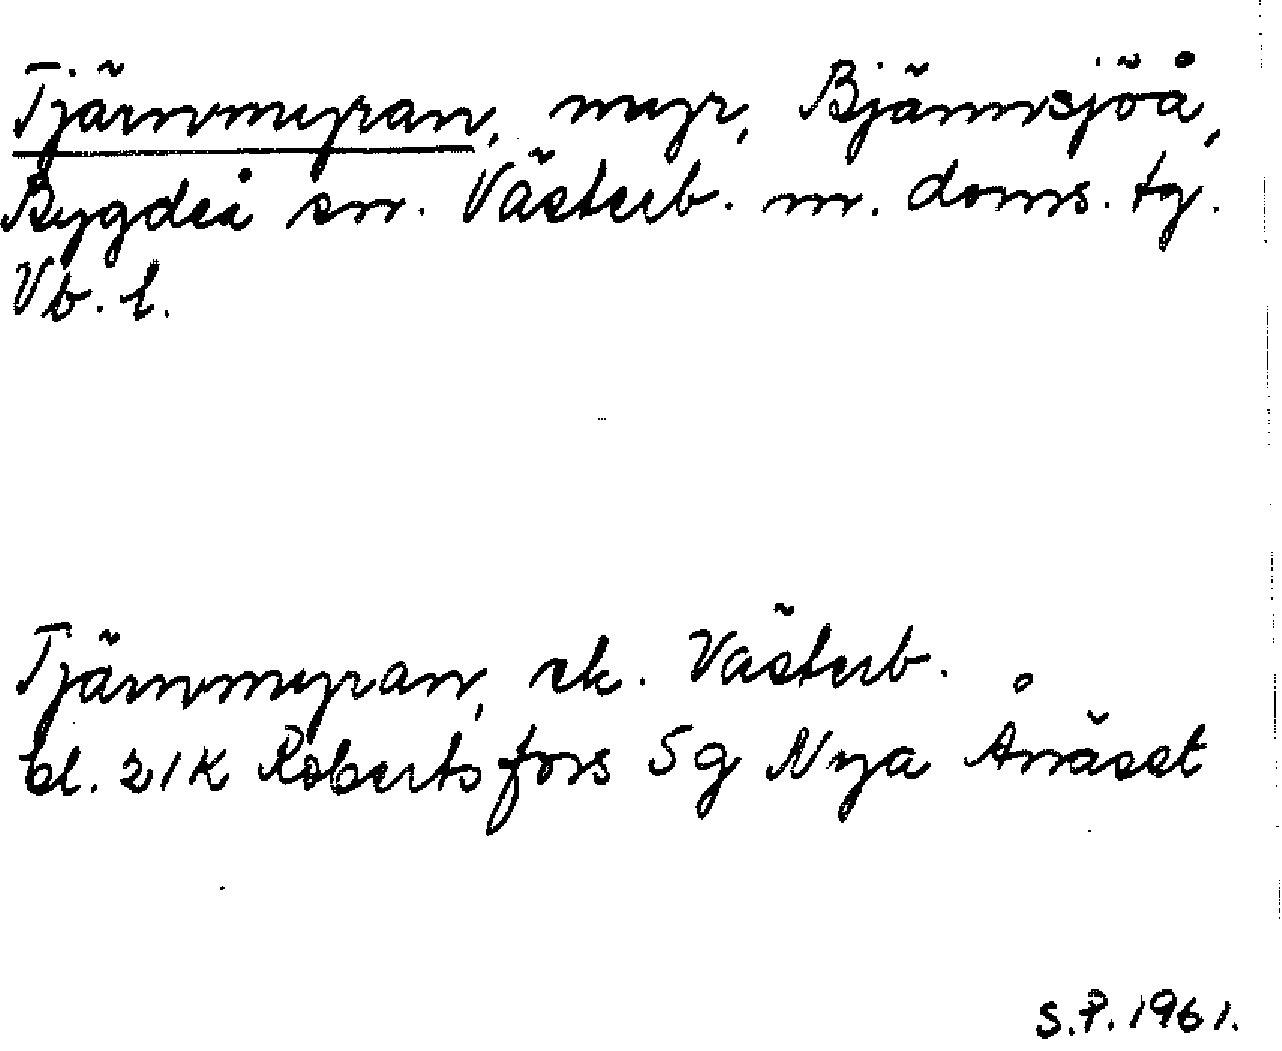 Tjärnmyran, myr, Bjännsjöå,
Bygdeå sn. Västerb. m. doms. tg.
Vb. l.
Tjärnmyran, ek. Västerb.
bl. 21K Robertsfors 5g Nya Ånäset
S.P. 1961.